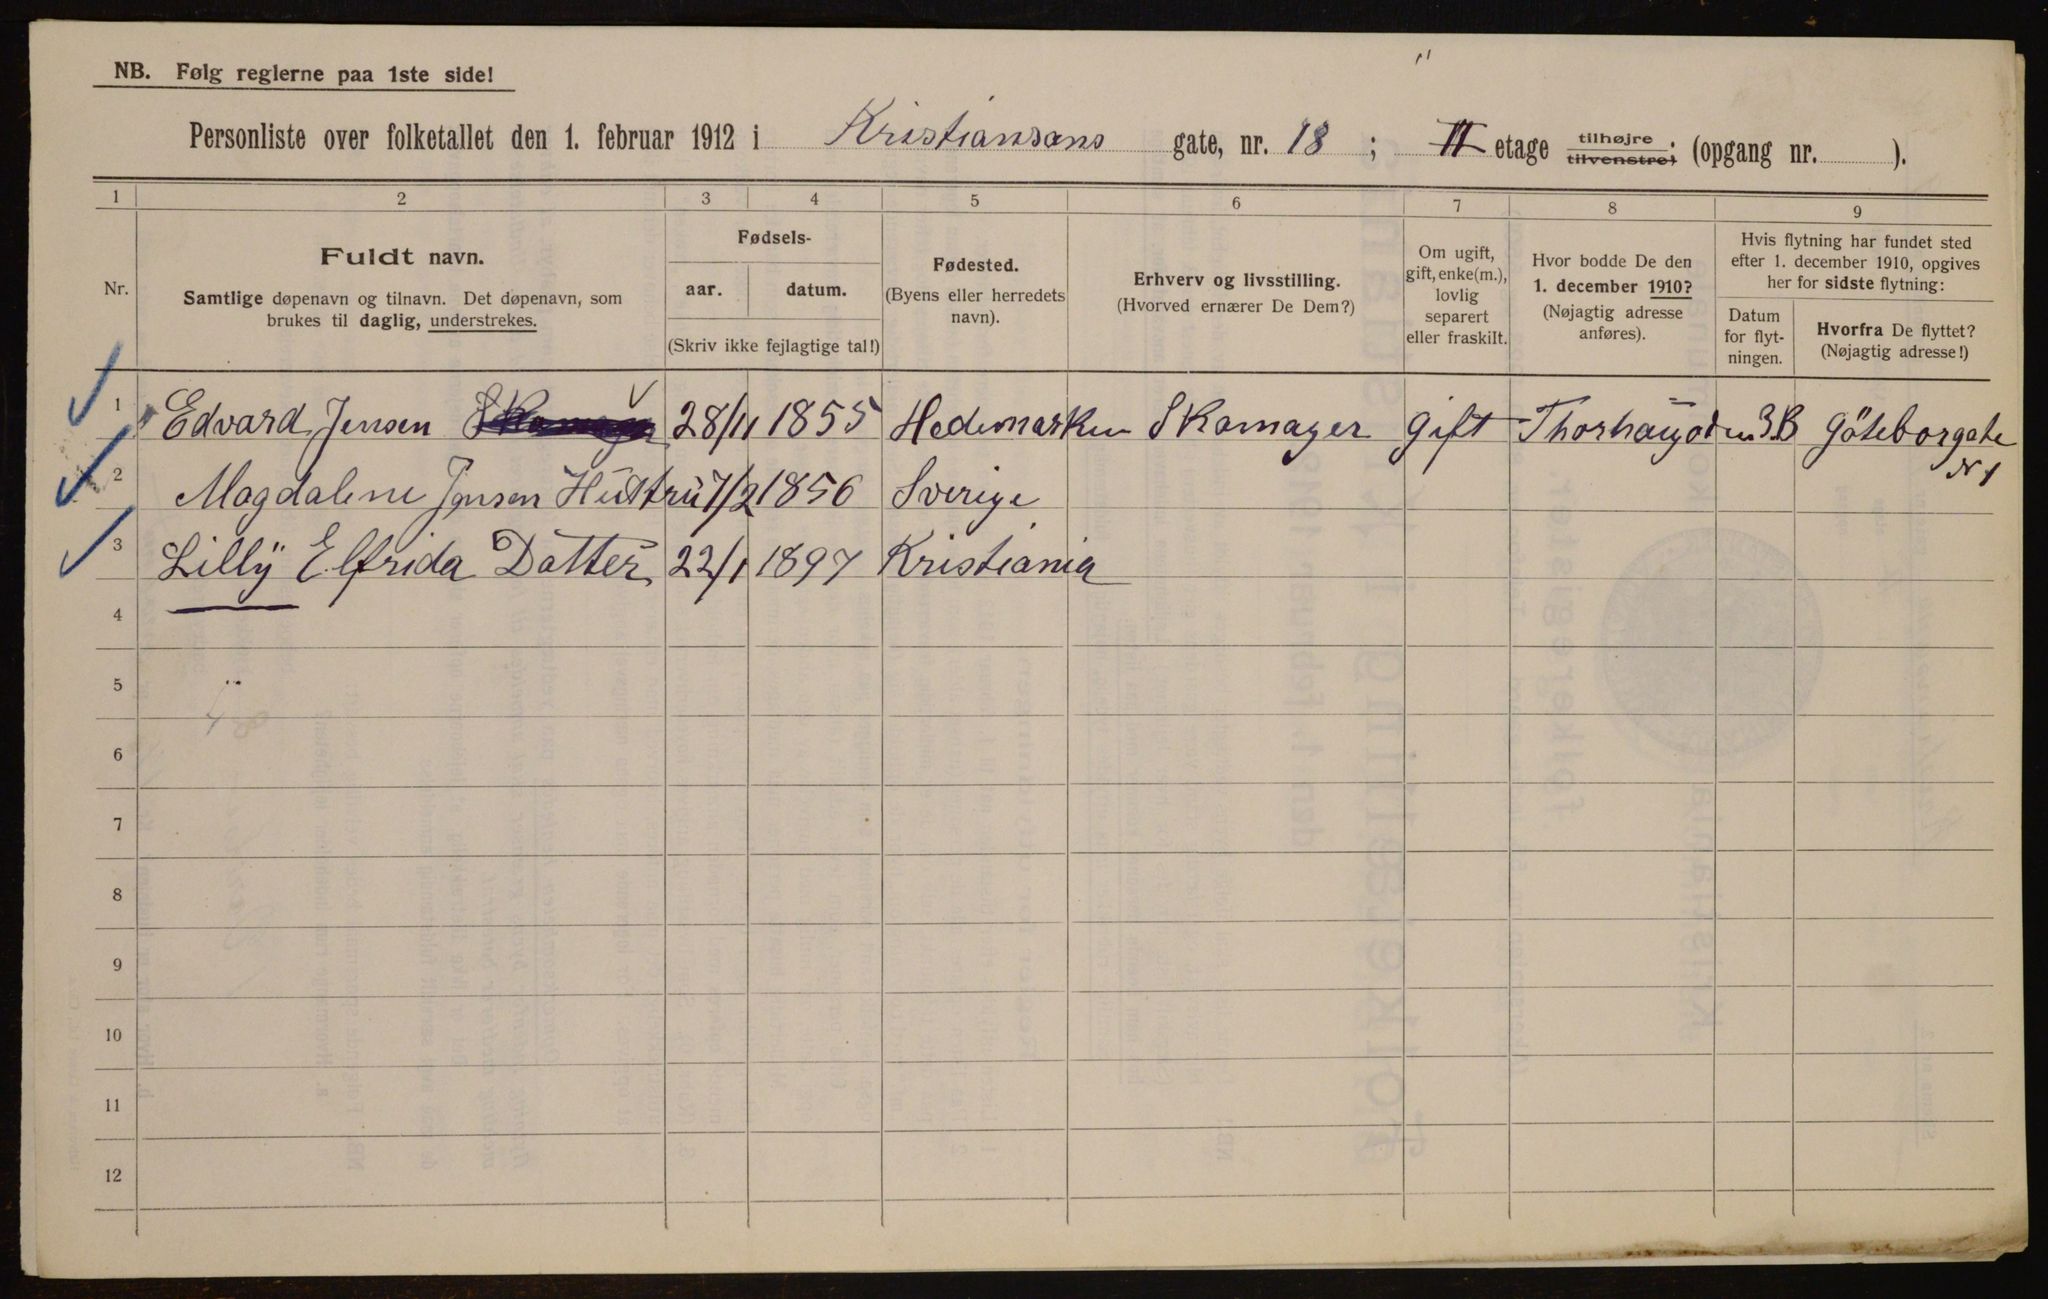 NB. Følg reglerne paa 1ste side!
Personliste over folketallet den 1. februar 1912 i Kristiansans gate, nr. 18 ; II etage tilhøjre. tilvenstre, (opgang nr. ).
1 2 3 4 5 6 7 8 9
Nr.
Fuldt navn.
Samtlige døpenavn og tilnavn. Det døpenavn, som
brukes til daglig, understrekes.
Fødsels-
aar. datum.
(Skriv ikke fejlagtige tal!)
Fødested.
(Byens eller herredets
navn).
Erhverv og livsstilling.
(Hvorved ernærer De Dem?)
Om ugift,
gift, enke(m.),
lovlig
separert
eller fraskilt.
Hvor bodde De den
1. december 1910?
(Nøjagtig adresse
anføres).
Hvis flytning har fundet sted
efter 1. december 1910, opgives
her for sidste flytning:
Datum
for flyt-
ningen.
Hvorfra De flyttet?
(Nøjagtig adresse!)
1 Edvard Jensen Skomager 28/11 1855 Hedemarken Skomager gift 3B Göteborgate
N 1
2 Magdalene Jensen Hustru 7/2 1856 Sverige
3 Lilly Elfrida Datter 22/1 1897 Kristiania
4
5
6
7
8
9
10
11
12